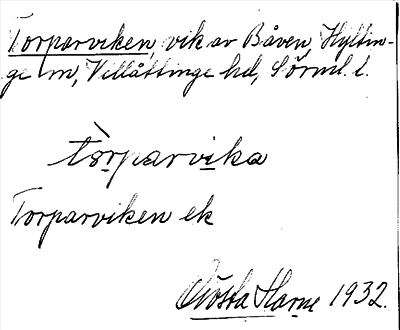 Torparviken, vik av Båven, Hyltin-
ge sn, Villåttinge hd, Sörml. l.
tòrparvika
Torparviken ek
Gösta Harne 1932.